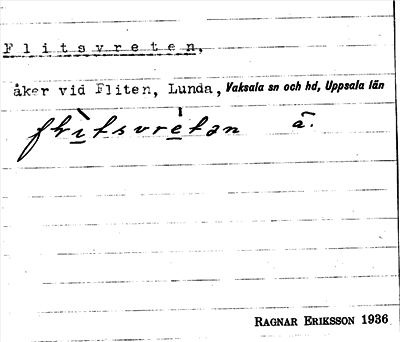 Flitsvreten,
åker vid Fliten, Lunda, Vaksala sn och hd, Uppsala län
flìtsvrétan ā.
RAGNAR ERIKSSON 1936